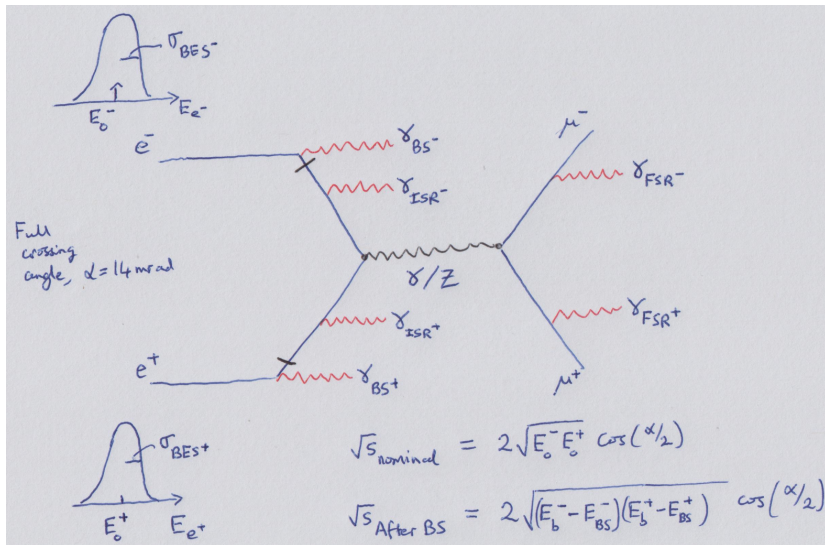 σ_BES-
E_o^-
E_e-
e^-
γ_BS-
γ_ISR-
μ^-
γ_FSR-
Full
crossing
angle, α = 14 mrad
γ/Z
γ_ISR+
γ_FSR+
e^+
γ_BS+
μ^+
σ_BES+
E_o^+
E_e+
√s_nominal = 2√(E_o^- E_o^+) cos(α/2)
√s_After BS = 2√((E_b^- - E_BS^-)(E_b^+ - E_BS^+)) cos(α/2)